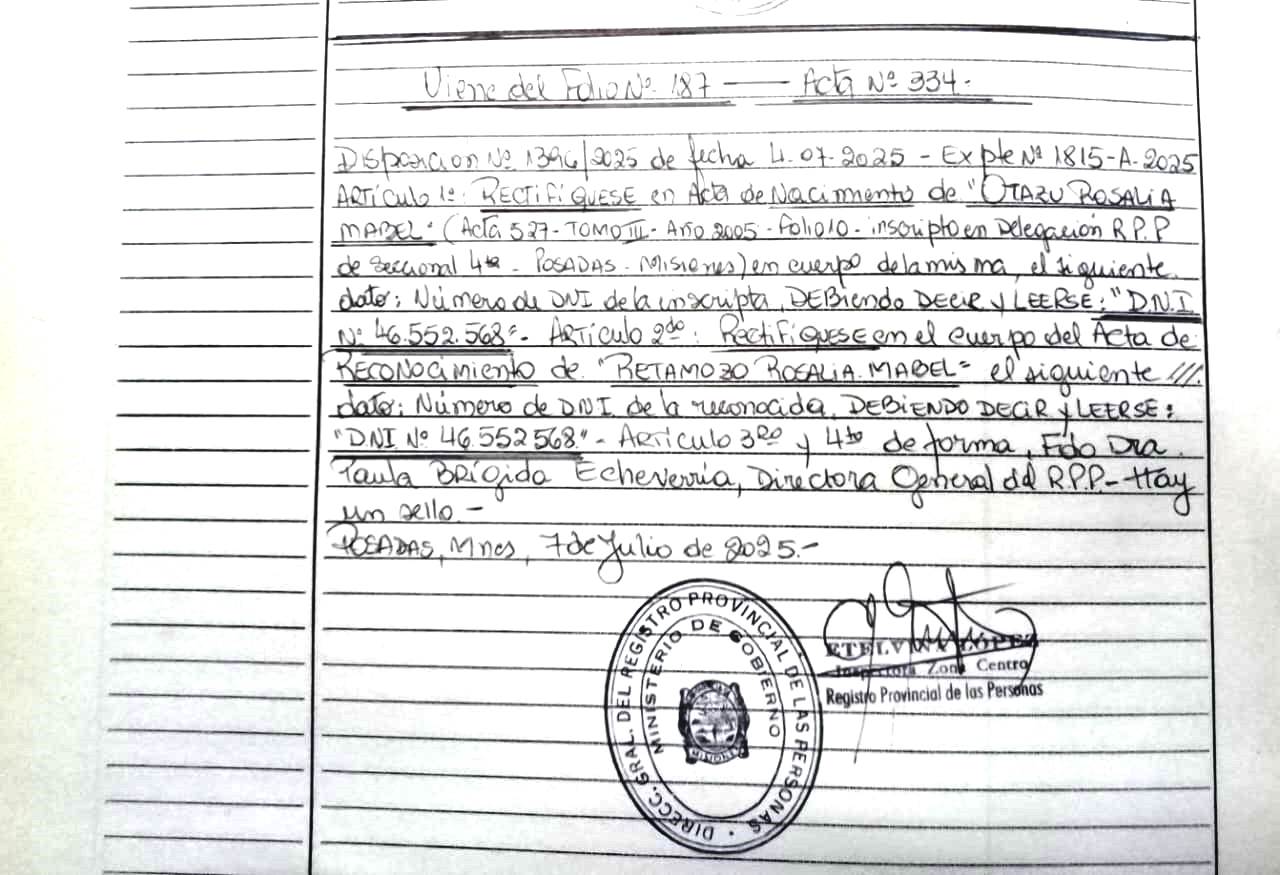 Viene del Folio Nº 187 —— Acta Nº 334.
Disposicion Nº 1396/2025 de fecha 4.07.2025 - Expte Nº 1815-A-2025
ARTÍCULO 1º: RECTIFÍQUESE en Acta de Nacimiento de "OTAZU ROSALIA
MABEL" (Acta 527- TOMO III - Año 2005 - Folio 10 - inscripto en Delegación R.P.P
de Seccional 4ta - POSADAS - Misiones) en cuerpo de la misma, el siguiente
dato: Número de DNI de la inscripta, DEBIENDO DECIR Y LEERSE: "D.N.I
Nº 46.552.568"- ARTÍCULO 2do: RECTIFÍQUESE en el cuerpo del Acta de
RECONOCIMIENTO de "RETAMOZO ROSALIA MABEL" el siguiente ///
dato: Número de DNI de la reconocida, DEBIENDO DECIR y LEERSE:
"DNI Nº 46.552568." - Artículo 3ro y 4to de forma, Fdo Dra.
Paula Brígida Echeverría, Directora General del R.P.P.- Hay
un sello.-
POSADAS, Mnes, 7 de Julio de 2025.-
DIRECC. GRAL. DEL REGISTRO PROVINCIAL DE LAS PERSONAS
MINISTERIO DE GOBIERNO
LOPEZ
Inspectora Zona Centro
Registro Provincial de las Personas